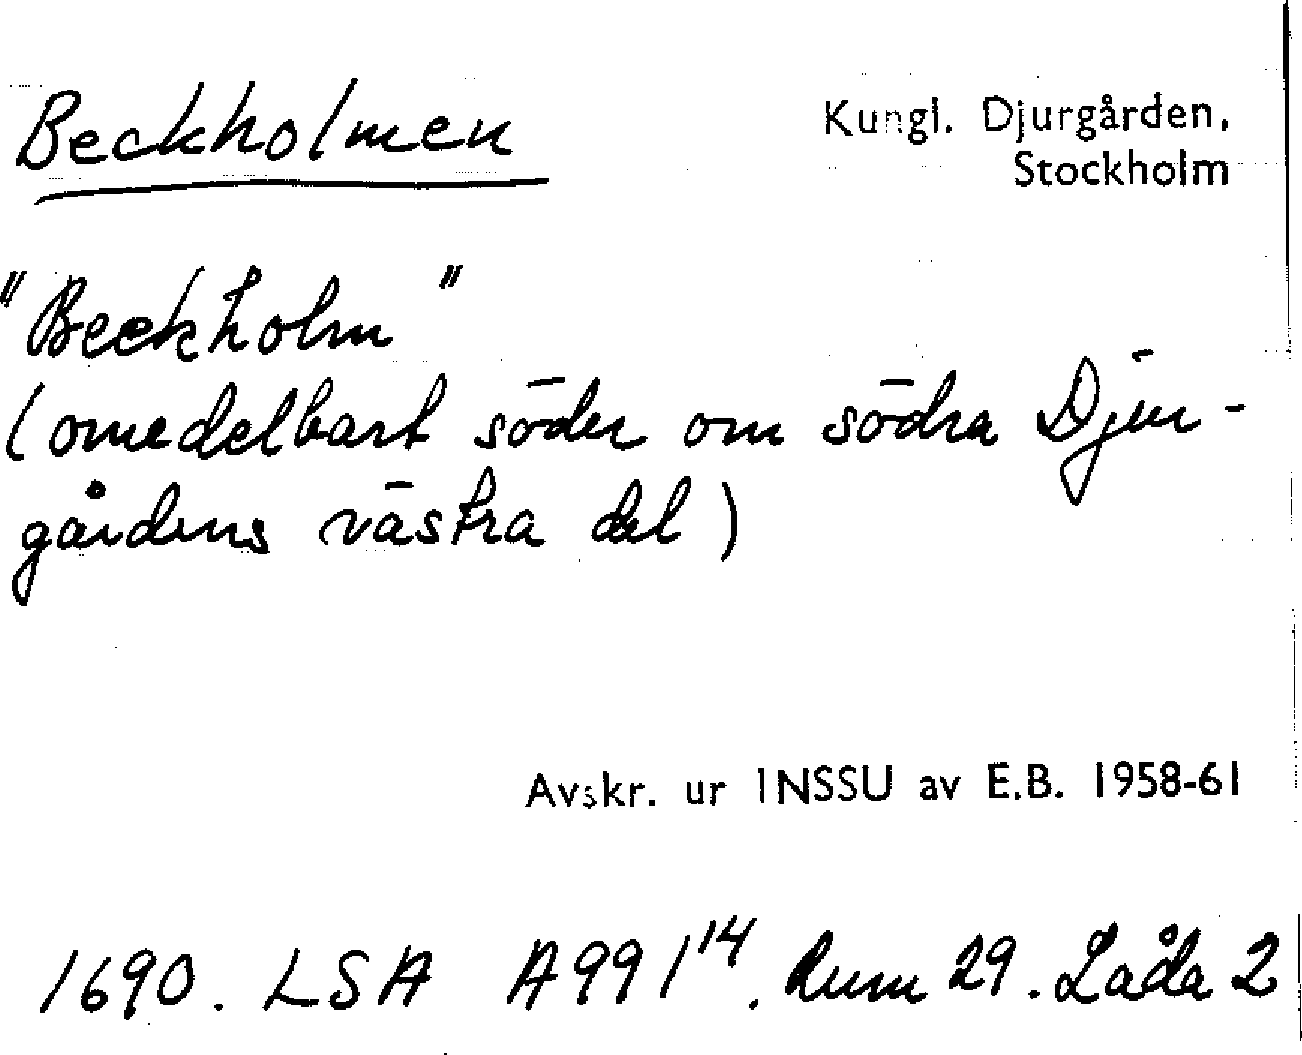 Beckholmen
Kungl. Djurgården,
Stockholm
"Beckholm"
(omedelbart söder om södra Djur-
gårdens västra del)
Avskr. ur INSSU av E.B. 1958-61
1690. LSA A99 1¹⁴. Rum 29. Låda 2